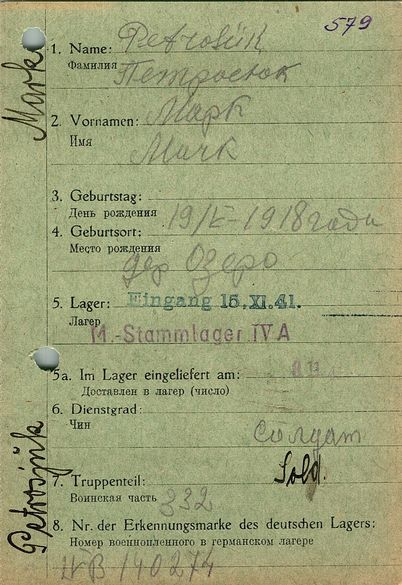 579
Mark
1. Name: Petrosük
Фамилия Петросюк
2. Vornamen: Марк
Имя
Mark
3. Geburtstag:
День рождения 19/ -1918 года
4. Geburtsort:
Место рождения
дер Озеро
5. Lager: Eingang 15. XI. 41.
Лагер
M.-Stammlager IV A
5a. Im Lager eingeliefert am:
Доставлен в лагер (число)
6. Dienstgrad:
Чин
солдат
Sold.
7. Truppenteil:
Воинская часть 332
8. Nr. der Erkennungsmarke des deutschen Lagers:
Номер военнопленного в германском лагере
IV B 140274
Petrosjuk